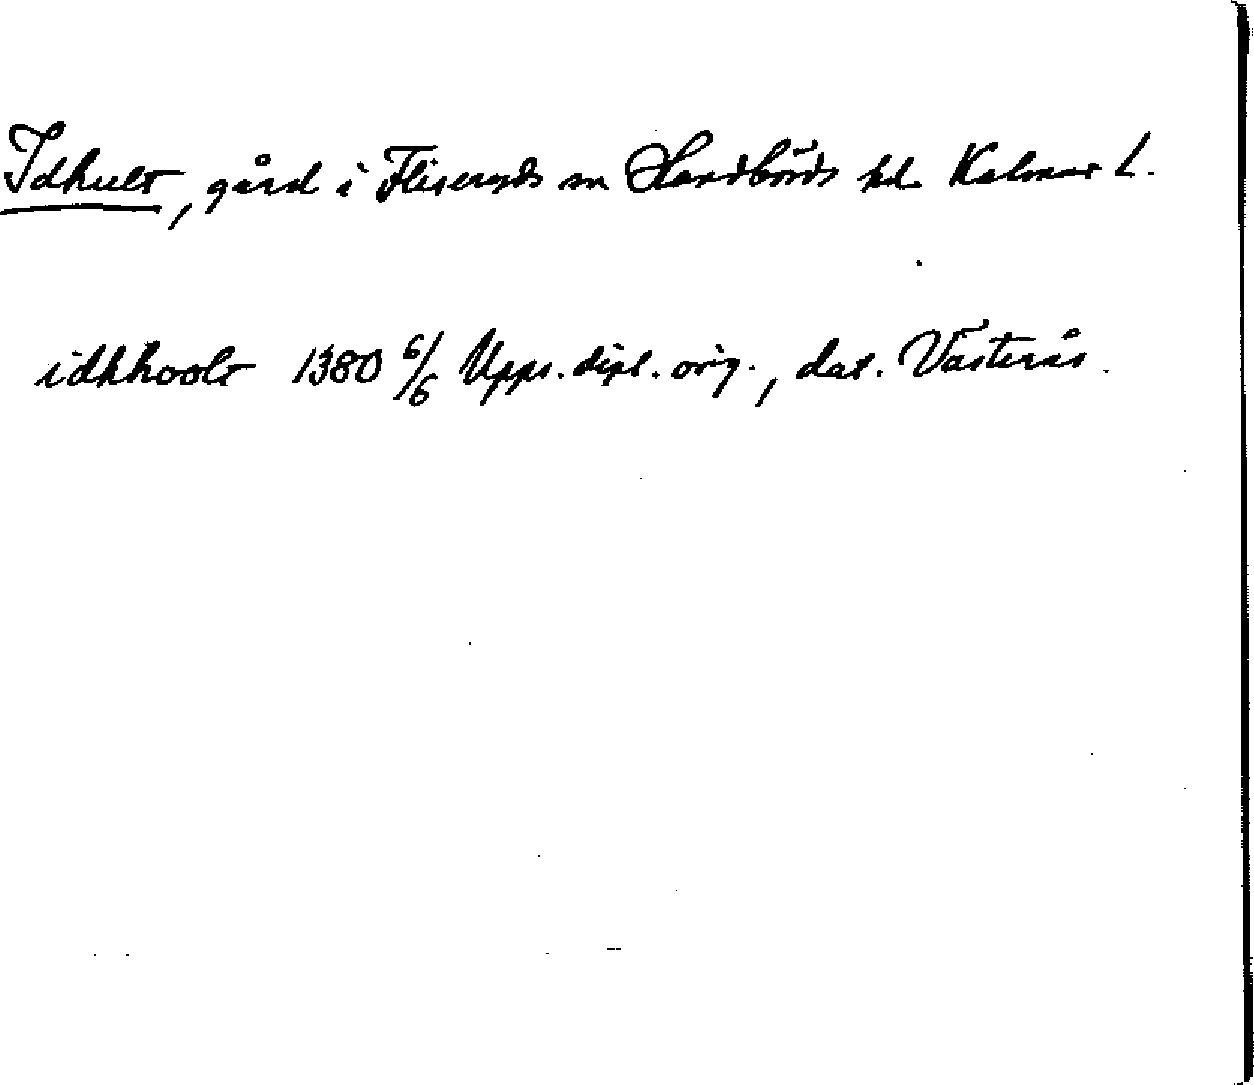 Idhult, gård i Fliseryds sn Handbörds hd. Kalmar L.
idhhoolt 1380 6/6 Upps. dipl. orig., dat. Västerås.